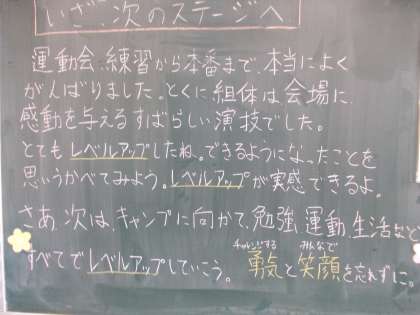 いざ、次のステージへ
運動会、練習から本番まで、本当によく
がんばりました。とくに組体は会場に、
感動を与えるすばらしい演技でした。
とてもレベルアップしたね。できるようになったことを
思いうかべてみよう。レベルアップが実感できるよ。
さあ、次は、キャンプに向かて、勉強、運動、生活など
すべてでレベルアップしていこう。
チャレンジする みんなで
勇気と笑顔を忘れずに。